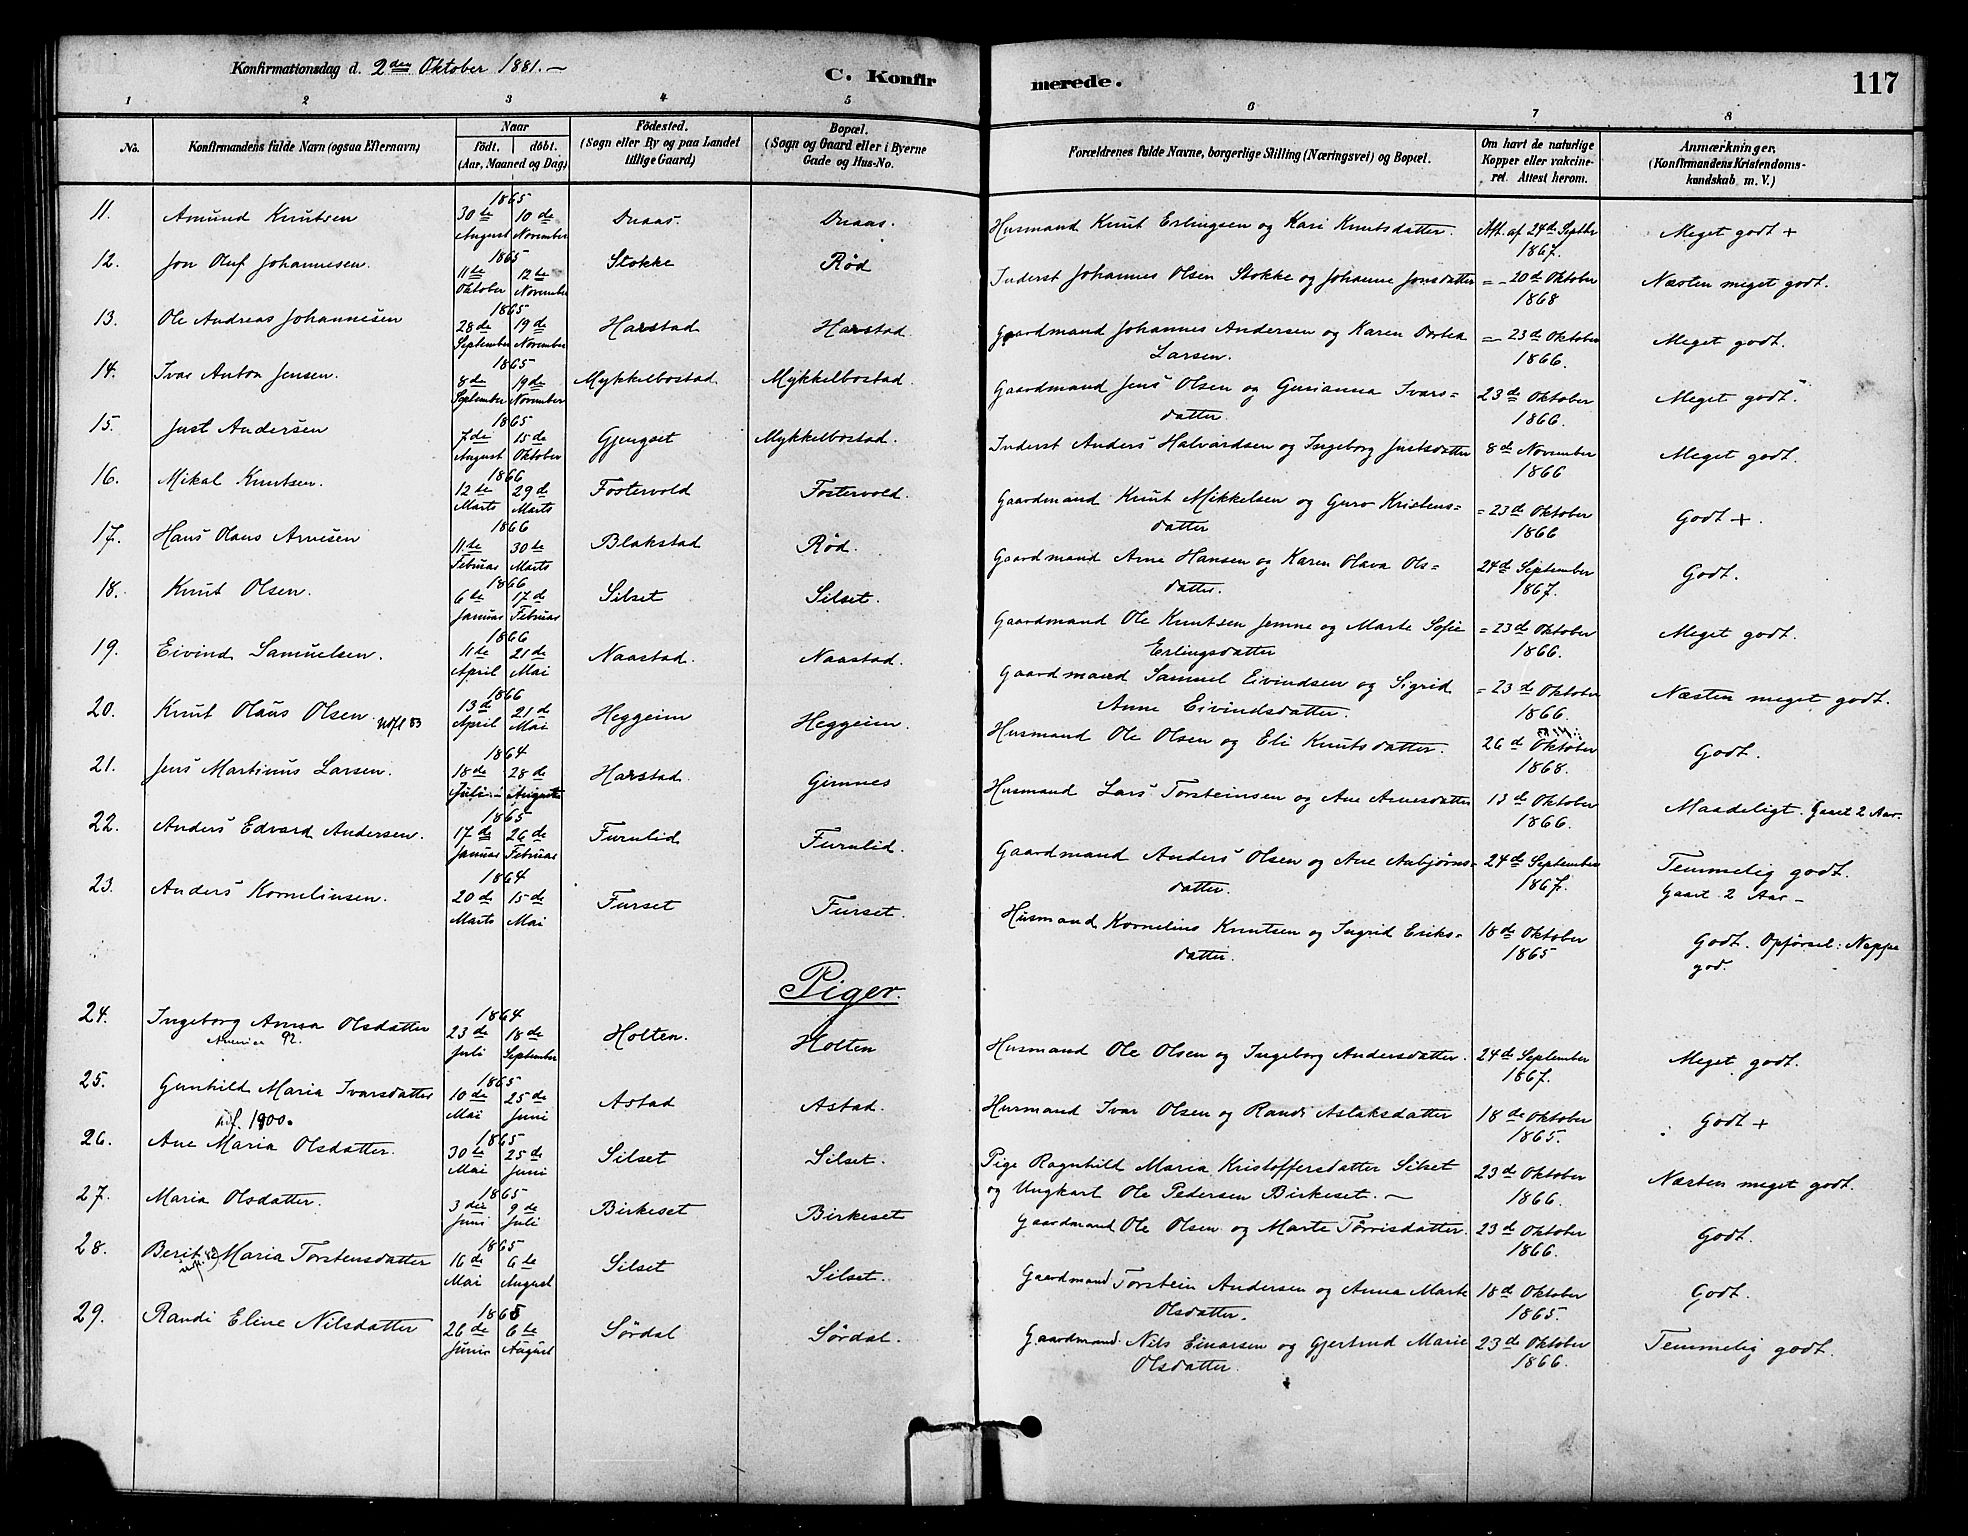 Konfirmationsdag d. 2den Oktober 1881.–
C. Konfirmerede.
117
1 2 3 4 5 6 7 8
No.
Konfirmandens fulde Navn (ogsaa Efternavn)
Naar
födt. döbt.
(Aar, Maaned og Dag)
Födested.
(Sogn eller By og paa Landet
tillige Gaard)
Bopæl.
(Sogn og Gaard eller i Byerne
Gade og Hus-No.
Forældrenes fulde Navne, borgerlige Stilling (Næringsvei) og Bopæl.
Om havt de naturlige
Kopper eller vakcine-
ret. Attest herom.
Anmærkninger.
(Konfirmandens Kristendoms-
kundskab m. V.)
11. Amund Knutsen 1865 30te August 10de November Draas. Draas. Husmand Knut Erlingsen og Kari Knutsdatter. Att. af 24de Septbr 1867. Meget godt +
12. Jon Oluf Johannesen. 1865 11te Oktober 12te November Stokke Rød Inderst Johannes Olsen Stokke og Johanne Jonsdatter = – 20d Oktober 1868 Næsten meget godt.
13. Ole Andreas Johannesen 1865 28de September 19de November Harstad Harstad Gaardmand Johannes Andersen og Karen Dortea
Larsen. = – 23d Oktober 1866. Meget godt.
14. Ivar Anton Jensen. 1865 8de September 19de November Mykkelbostad Mykkelbostad. Gaardmand Jens Olsen og Gurianna Ivars=
datter. 23de Oktober 1866. Meget godt.
15. Just Andersen 1865 7de August 15de Oktober Gjengset Mykkelbostad. Inderst Anders Halvardsen og Ingeborg Justsdatter 8de November 1866 Meget godt.
16. Mikal Knutsen. 1866 12de Marts 29de Marts Fostervold Fostervold. Gaardmand Knut Mikkelsen og Guro Kristens=
datter = 23d Oktober 1866 Godt +.
17. Hans Olaus Arnesen 1866 11te Februar 30te Marts Blakstad Rød. Gaardmand Arne Hansen og Karen Olava Ols=
datter. 24d September 1867. Godt.
18. Knut Olsen. 1866 6te Januar 17de Februar Silset Silset. Gaardmand Ole Knutsen Jemne og Marte Sofie
Erlingsdatter = 23de Oktober 1866. Meget godt.
19. Eivind Samuelsen. 1866 11te April 21de Mai Naastad. Naastad. Gaardmand Samuel Eivindsen og Sigrid
Anne Eivindsdatter. = 23de Oktober 1866. Næsten meget godt.
20. Knut Olaus Olsen. Udfl 83 1866 13de April 21de Mai Heggeim Heggeim. Husmand Ole Olsen og Eli Knutsdatter. 26de Oktober 1868. Godt.
21. Jens Martinus Larsen. 1864 18de Juli.– 28de August Harstad. Gimnes Husmand Lars Torsteinsen og Ane Arnesdatter 13de Oktober 1866. Maadeligt. Gaaet 2 Aar.
22. Anders Edvard Andersen. 1865 17de Januar 26de Februar Furulid Furulid. Gaardmand Anders Olsen og Ane Asbjørns=
datter. 24de September 1867. Temmelig godt.
Gaaet 2 Aar –
23. Anders Korneliusen. 1864 20de Marts 15de Mai Furset Furset. Husmand Kornelius Knutsen og Ingrid Eriks=
datter. 18de Oktober 1865 Godt. Opførsel: Neppe
god.
Piger.
24. Ingeborg Anna Olsdatter
America 92. 1864 23de Juli 18de September Holten. Holten Husmand Ole Olsen og Ingeborg Andersdatter. 24de September 1867. Meget godt.
25. Gunhild Maria Ivarsdatter
udf. 1900. 1865 10de Mai 25de Juni Astad Astad. Husmand Ivar Olsen og Randi Aslaksdatter 18de Oktober 1865. Godt +
26. Ane Maria Olsdatter. 1865 30te Mai 25de Juni Silset Silset. Pige Ragnhild Maria Kristoffersdatter Silset
og Ungkarl Ole Pedersen Birkeset. – 23de Oktober 1866. Næsten meget godt.
27. Maria Olsdatter. 1865 3die Juni 9de Juli Birkeset Birkeset Gaardmand Ole Olsen og Marte Tørrisdatter. 23de Oktober 1866. Godt.
28. Berit Maria Torstensdatter 1865 16de Mai 6te August Silset Silset. Gaardmand Torstein Andersen og Anna Marte
Olsdatter. 18de Oktober 1865. Godt.
29. Randi Eline Nilsdatter 1865 26de Juni 6te August Sørdal Sørdal. Gaardmand Nils Einarsen og Gjertrud Marie
Olsdatter. 23de Oktober 1866. Temmelig godt.